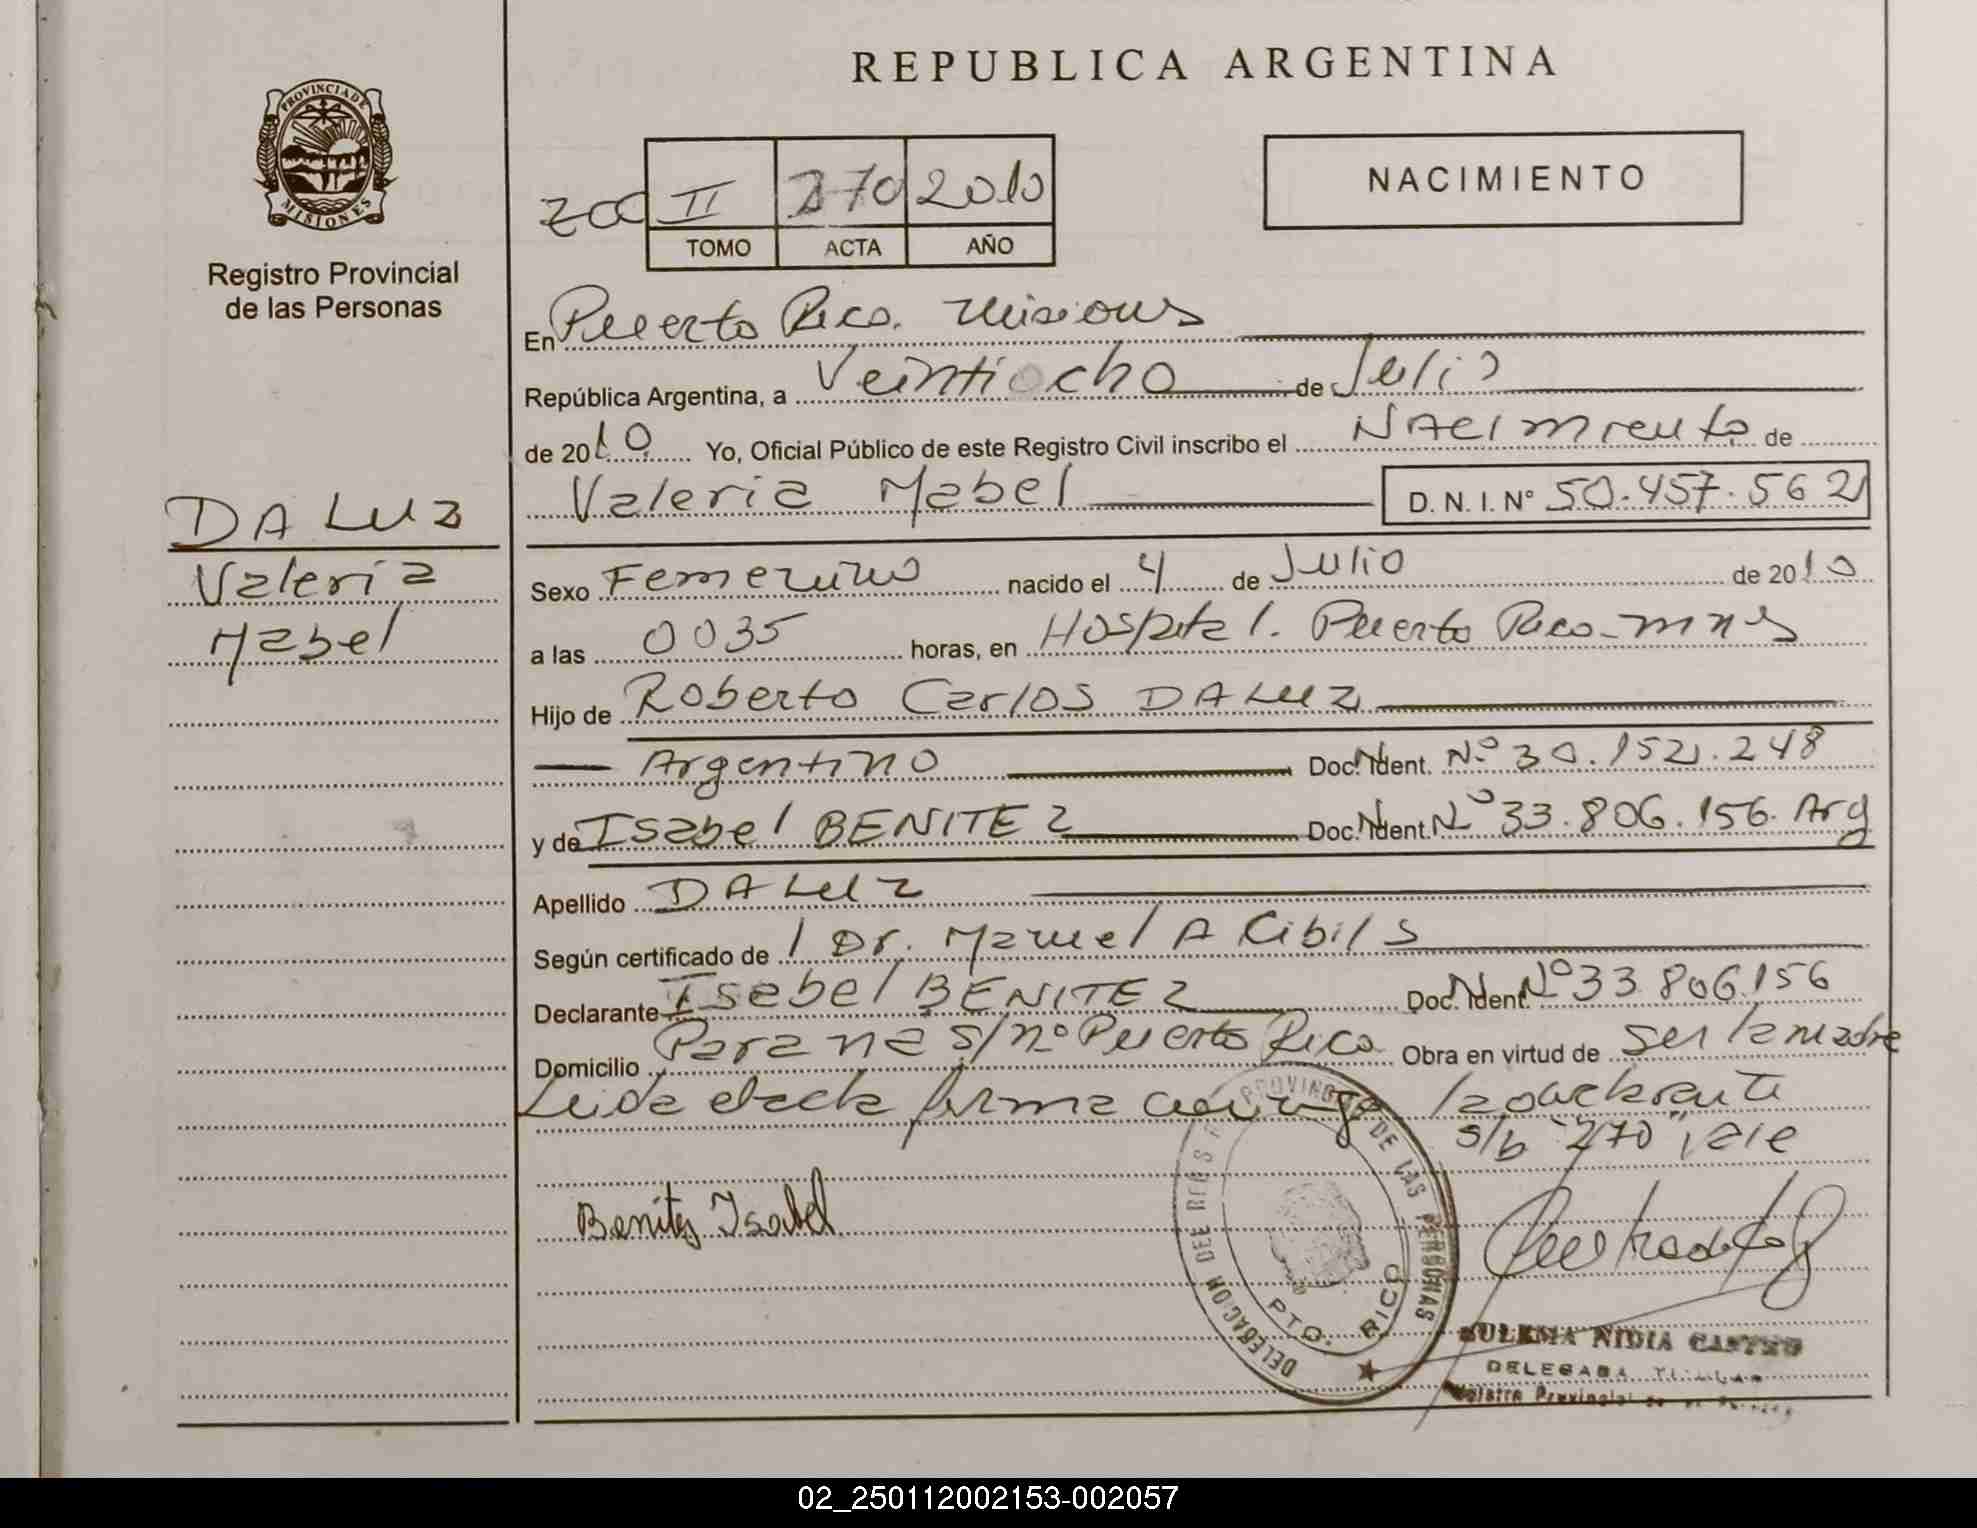 REPUBLICA ARGENTINA
PROVINCIA DE
MISIONES
Registro Provincial
de las Personas
II 270 2010
TOMO ACTA AÑO
NACIMIENTO
En Puerto Rico. Misiones
República Argentina, a Veintiocho de Julio
de 2010. Yo, Oficial Público de este Registro Civil inscribo el NAcimiento de
Valeria Mabel D. N. I. N° 50.457.562
DA LUZ
Valeria
Mabel
Sexo Femenino nacido el 4 de Julio de 2010
a las 0035 horas, en Hospital. Puerto Rico-mnes
Hijo de Roberto Carlos DA LUZ
Argentino Doc. Ident. N° 30.152.248
y de Isabel BENITEZ Doc. Ident. N° 33.806.156. Arg
Apellido DA LUZ
Según certificado de Dr. Manuel A Cibils
Declarante Isabel BENITEZ Doc. Ident. N° 33.806.156
Domicilio Parana s/n° Puerto Rico Obra en virtud de ser la madre
Leida el acta firma conmigo la declarante
s/b "270" vale
Benitez Isabel
DELEGACION DEL REGIST PROVINC DE LAS PERSONAS
PTO. RICO
ZULEMA NIDIA CASTRO
DELEGADA TITULAR
Registro Provincial de las Personas
02_250112002153-002057